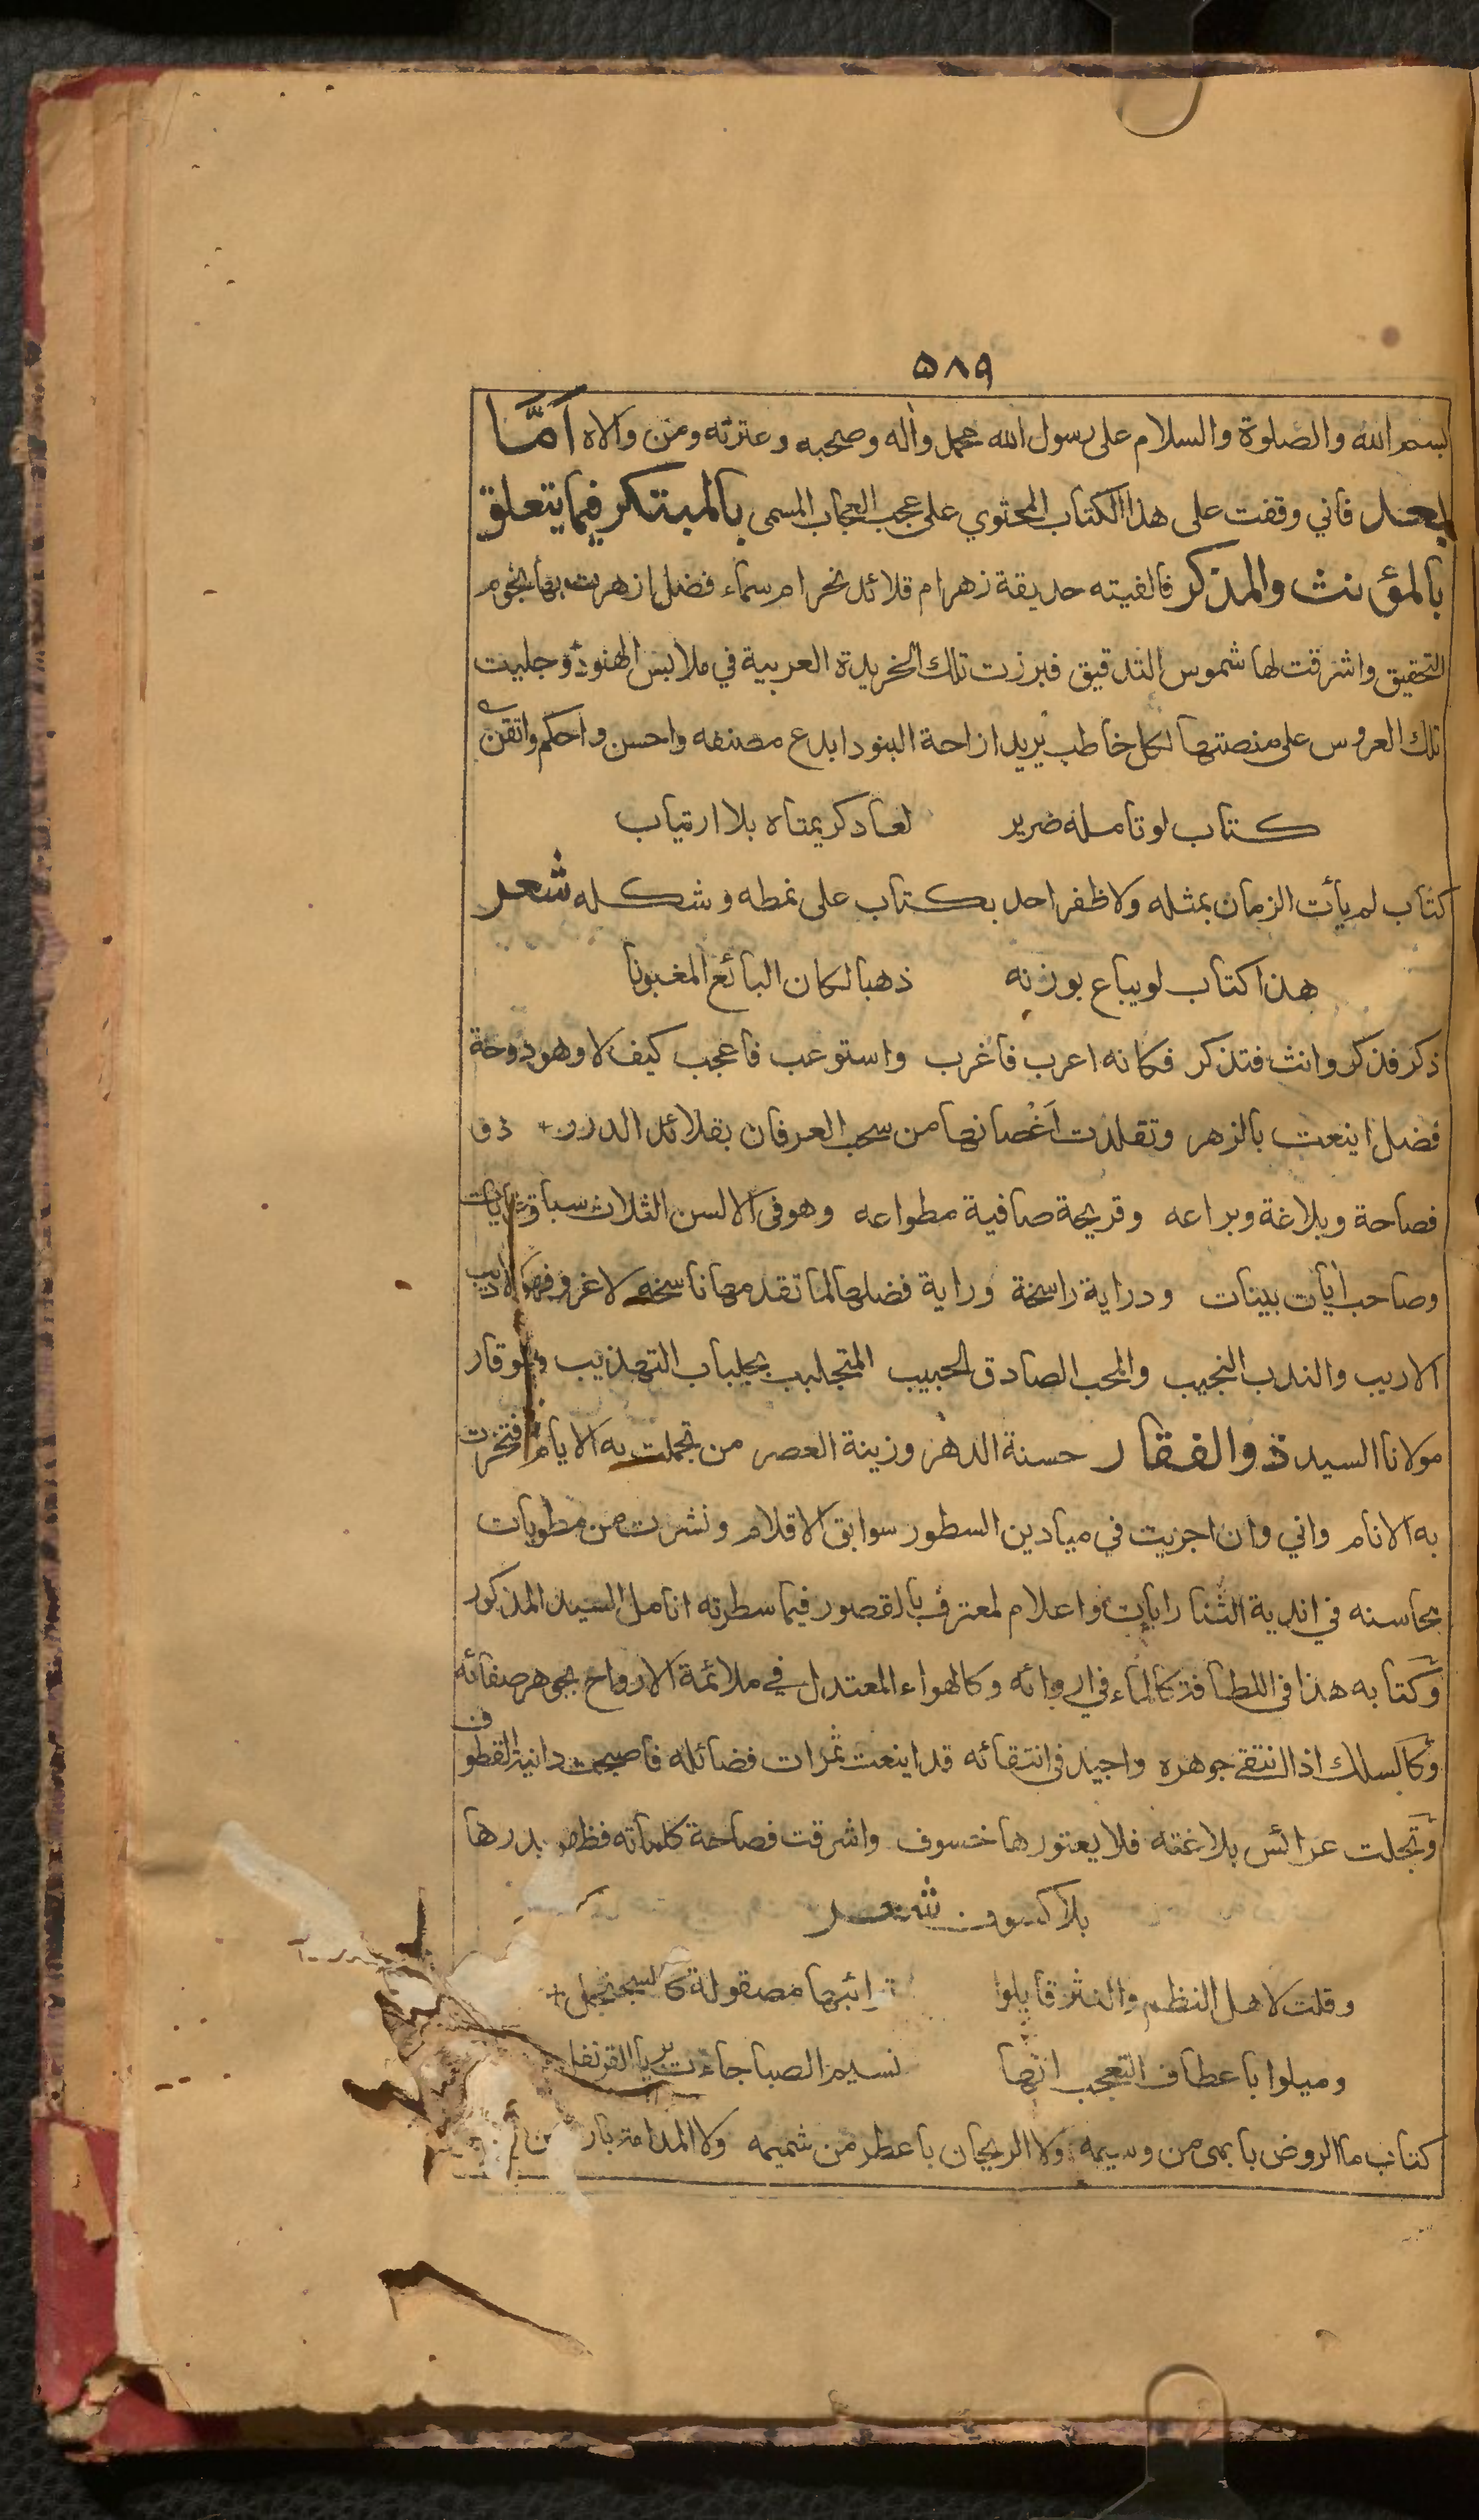 ٥٨٩
بسم الله والصلوة والسلام على رسول الله محمد وآله وصحبه وعترته ومن والاه أمّا
بعد فاني وقفت على هذا الكتاب المحتوي على عجب العجاب المسمى بالمبتكر فيما يتعلق
بالمؤنث والمذكر فالفيته حديقة زهر ام قلائد نحر ام سماء فضل ازهرت بها نجوم
التحقيق واشرقت لها شموس التدقيق فبرزت تلك الخريدة العربية في ملابس الهنود وجليت
تلك العروس على منصتها لكل خاطب يريد ازاحة البنود ابدع مصنفه واحسن واحكم واتقن
كتاب لو تامله ضرير لعاد كريمتاه بلا ارتياب
كتاب لم يأت الزمان بمثله ولا ظفر احد بكتاب على نمطه وشكله شعر
هذا كتاب لو يباع بوزنه ذهبا لكان البائع المغبونا
ذكر فذكر وانث فتذكر فكانه اعرب فأغرب واستوعب فأعجب كيف لا وهو دوحة
فضل اينعت بالزهر وتقلدت أغصانها من سحب العرفان بقلائد الدرر ذو
فصاحة وبلاغة وبراعه وقريحة صافية مطواعه وهو في الالسن الثلاث سباق غايات
وصاحب آيات بينات ودراية راسخة وراية فضلها لما تقدمها ناسخه لا غرو فهو الاديب
الاريب والندب النجيب والمحب الصادق الحبيب المتجلبب بجلباب التهذيب والوقار
مولانا السيد ذو الفقار حسنة الدهر وزينة العصر من تجملت به الايام وافتخرت
به الانام واني وان اجريت في ميادين السطور سوابق الاقلام ونشرت من مطويات
محاسنه في اندية الثنا رايات واعلام لمعترف بالقصور فيما سطرته انامل السيد المذكور
وكتابه هذا في اللطافة كالماء في اروائه وكالهواء المعتدل في ملائمة الارواح بجوهر صفائه
وكالسلك اذا انتقى جوهره واجيد في انتقائه قد اينعت ثمرات فضائله فاصبحت دانية القطوف
وتجلت عرائس بلاغته فلا يعتورها خسوف واشرقت فصاحة كلماته فظهر بدرها
بلا كسوف شعر
وقلت لاهل النظم والنثر قابلوا ترائبها مصقولة كالسجنجل
وميلوا باعطاف التعجب انها نسيم الصبا جاءت بريا القرنفل
كتاب ما الروض بابهى من وسيمه ولا الريحان باعطر من شميمه ولا المدامة